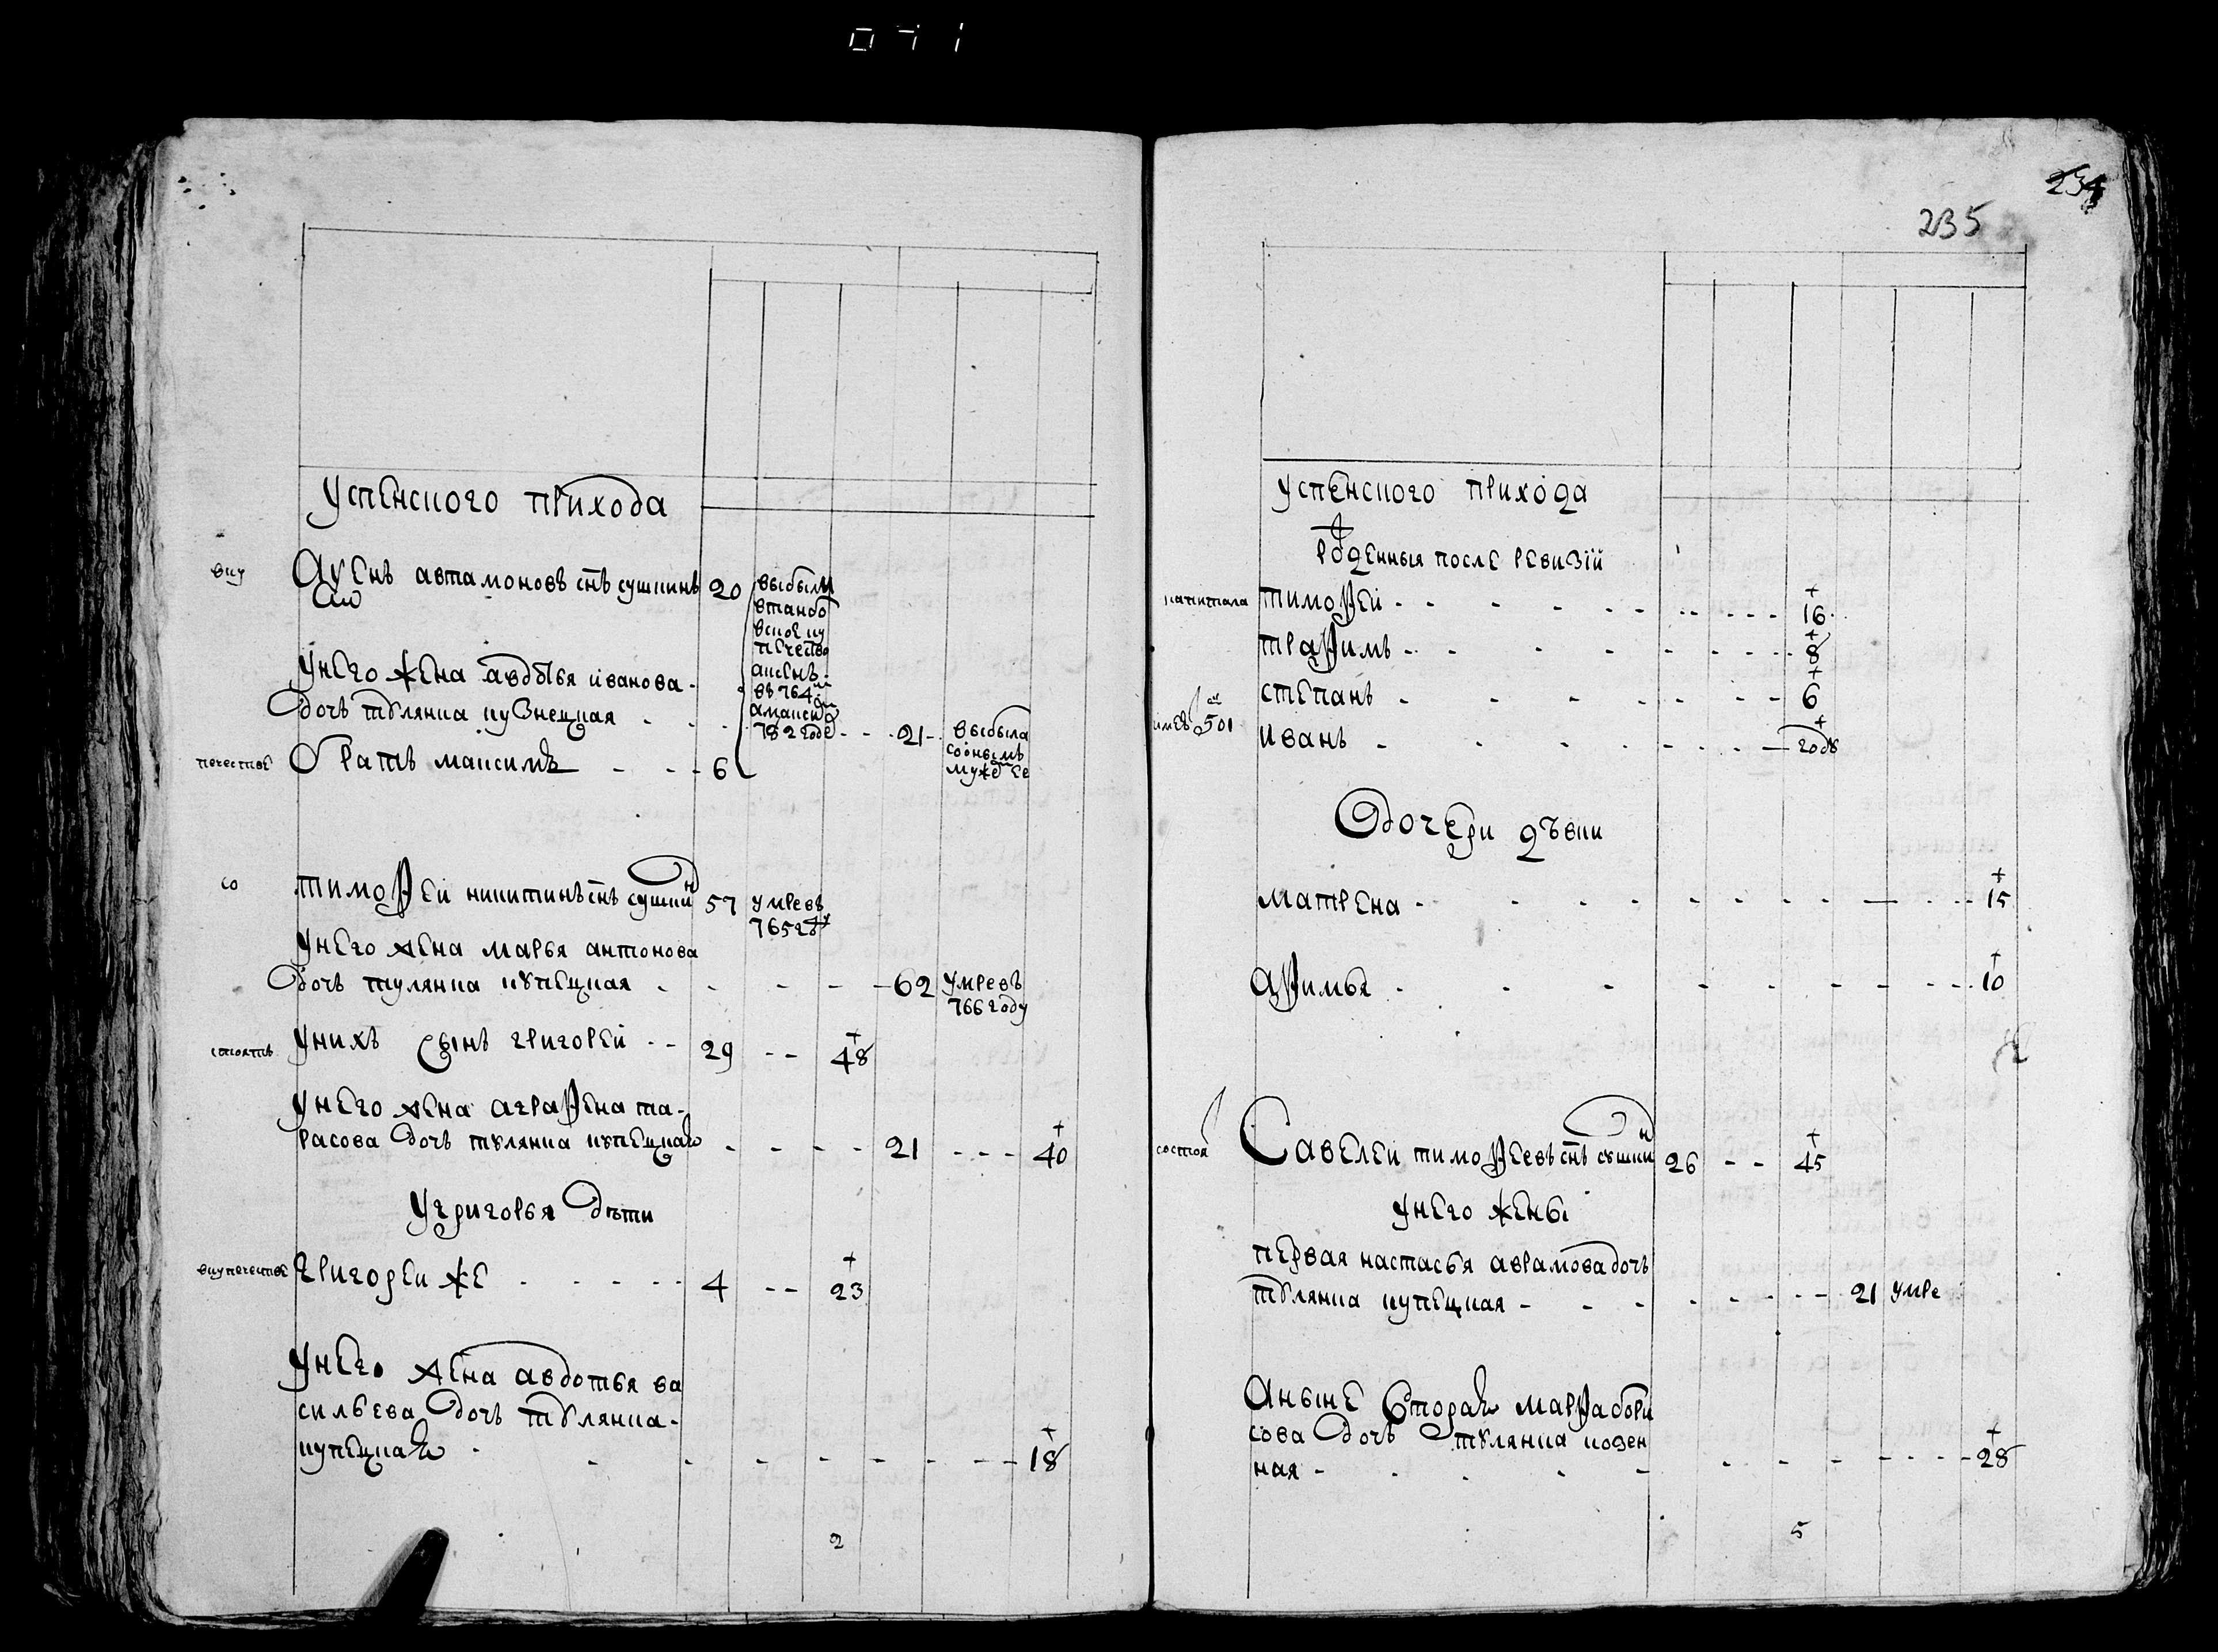 071
Успенского прихода
вку
Аѵенъ автамоновъ снъ сушкинъ 20 выбыли
втанбо
вское ку
печество
аксенъ
въ 764м
амаксим
782 годе
Унего жена авдотья иванова
дочь тулянка кузнецкая - - - 21 - выбыла
сооным
мужем ее
печестве
братъ максимъ - - - 6
со
тимоѳей никитинъ снъ сушкин 57 умре въ
765 году
Унего жена марья антонова
дочь тулянка купецкая - - - - 62 умре въ
766 году
стоятъ
Унихъ сынъ григорей - - 29 - - 48
Унего жена аграѳена та-
расова дочь тулянка купецкая - - - - 21 - - - 40
Угригорья дети
вкупечестве
григорей же - - - - - 4 - - 23
Унего жена авдотья ва
сильева дочь тулянка
купецкая - - - - - - - - 18
2
234
235
Успенского прихода
роденныя после ревизіи
капитала
тимоѳей - - - - - - 16
траѳимъ - - - - - - 8
степанъ - - - - - - 6
501
иванъ - - - - - - годъ
дочери девки
матрена - - - - - - 15
аѳимья - - - - - - 10
состоя
Савелей тимоѳеевъ снъ сушкин 26 - - 45
унего жены
первая настасья аврамова дочь
тулянка купецкая - - - - - - 21 умре
Аныне вторая марѳа бори
сова дочь тулянка козен
ная - - - - - - 28
5